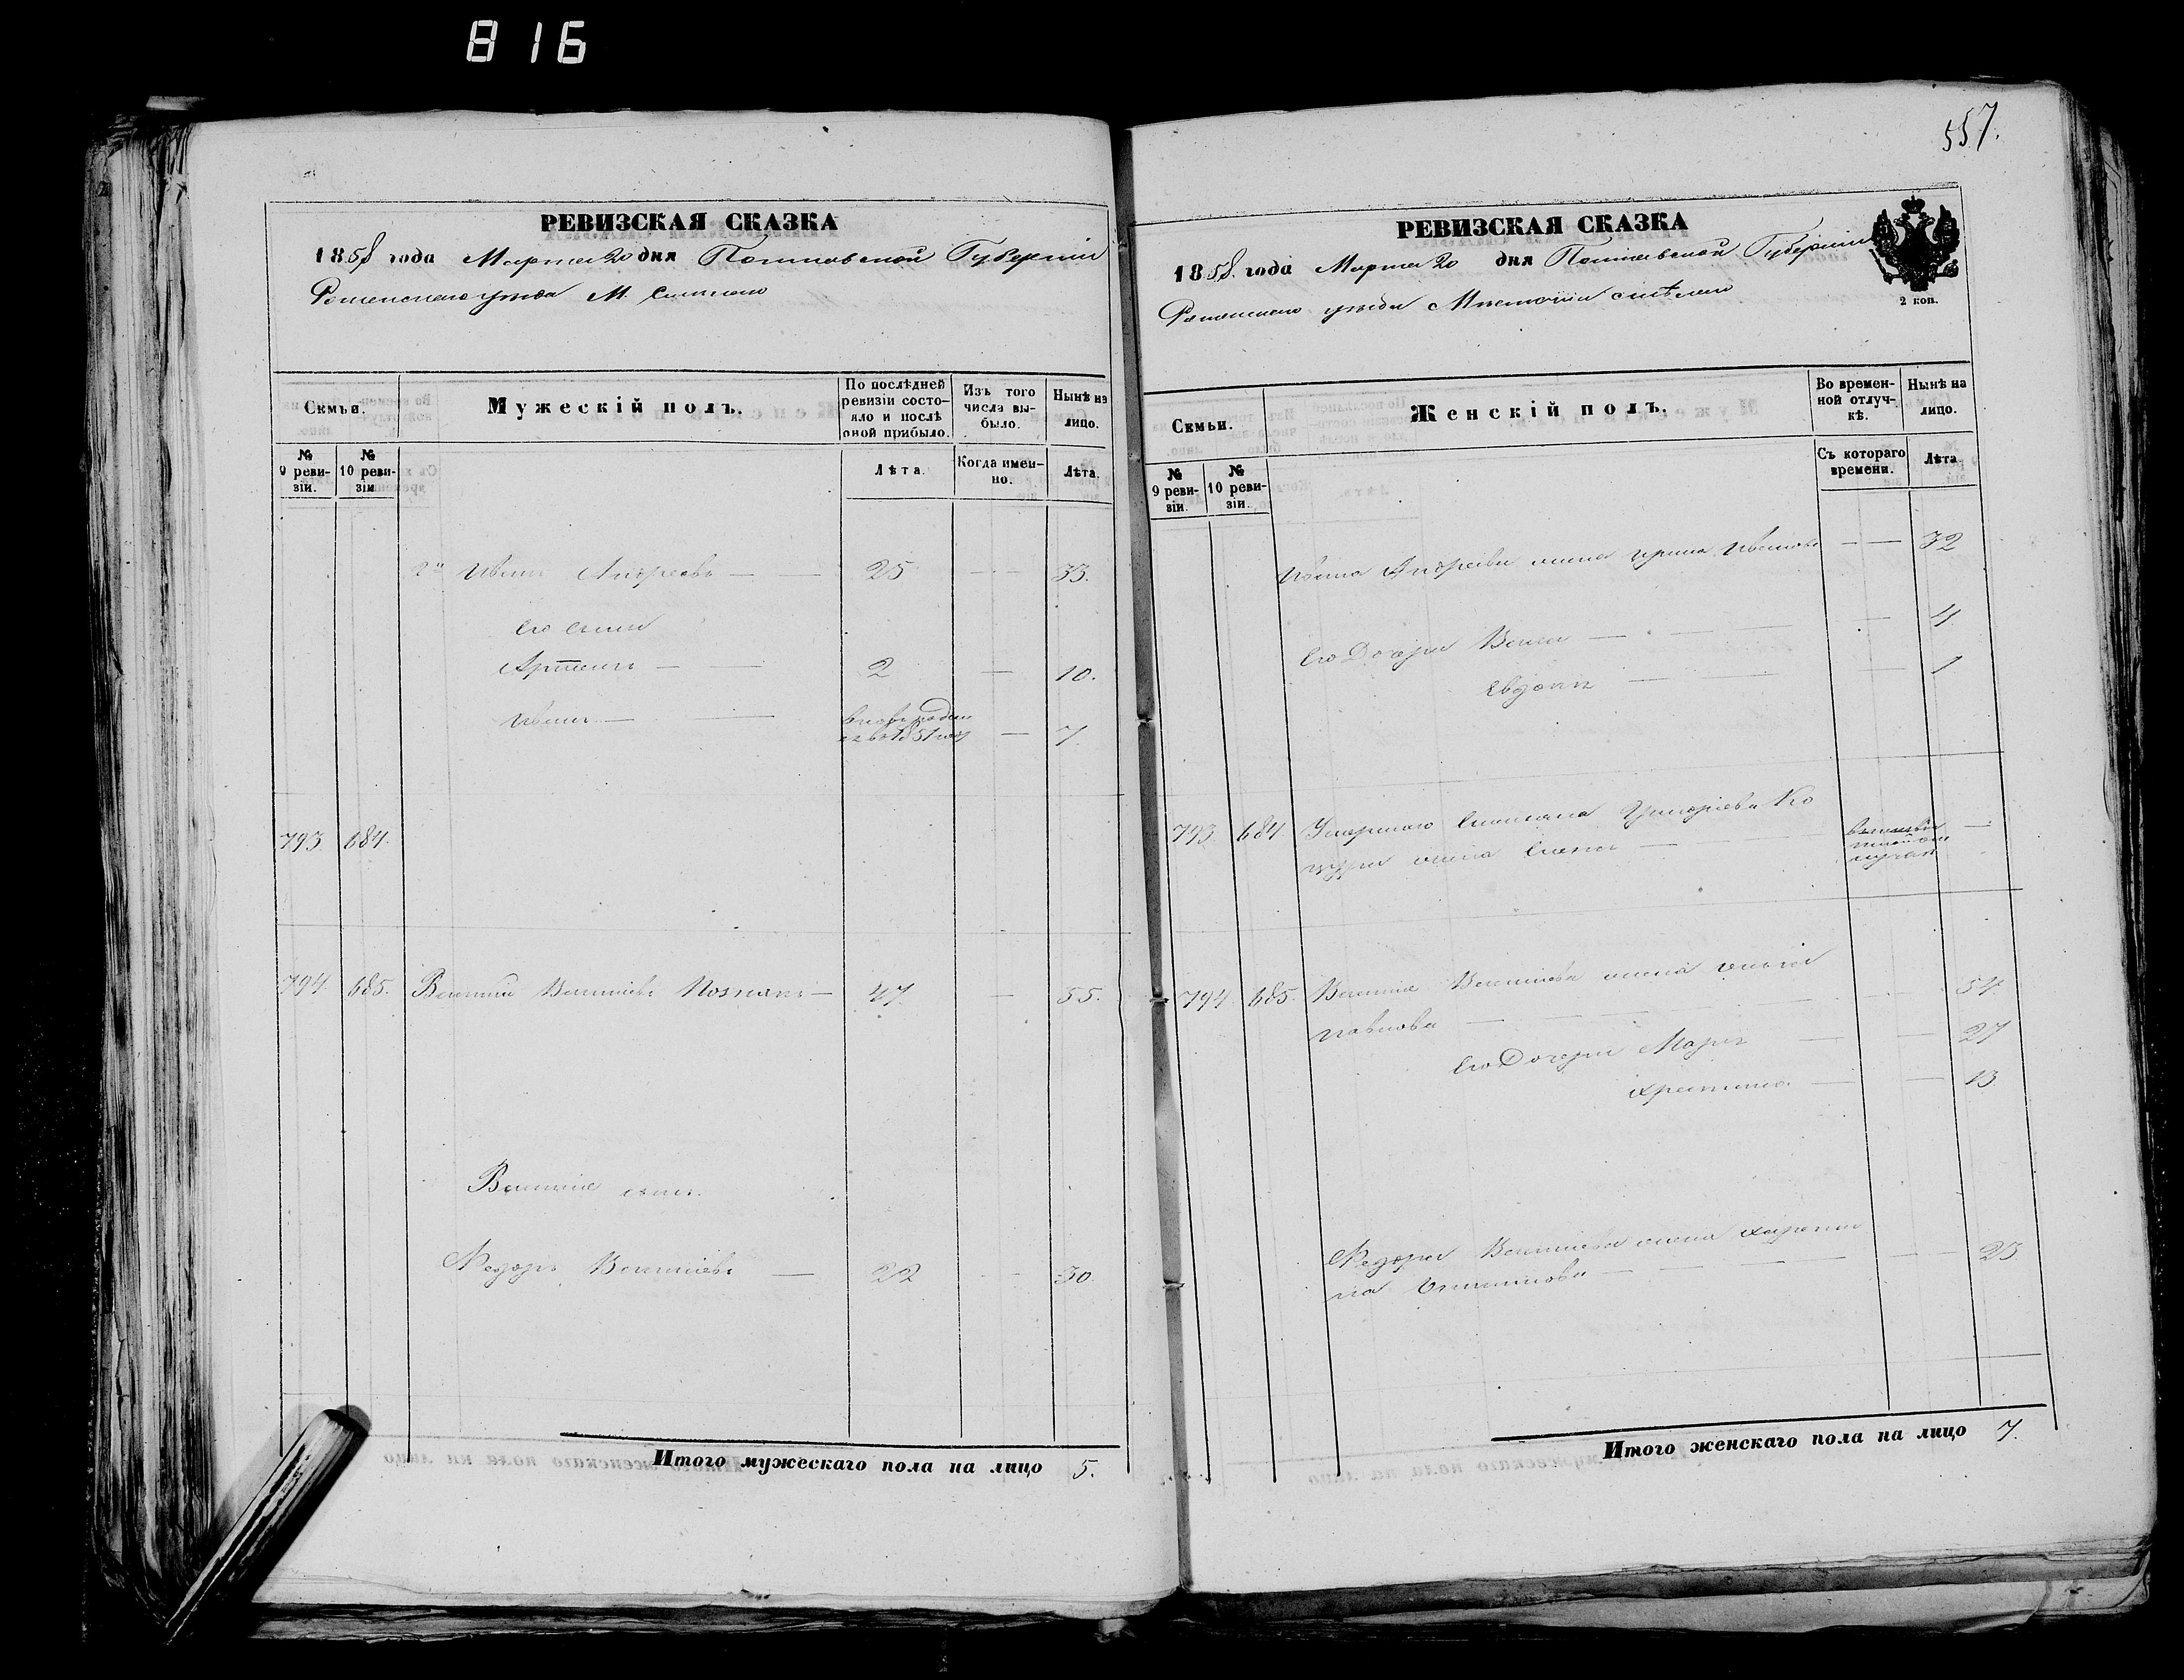 816
РЕВИЗСКАЯ СКАЗКА
1858 года Марта 20 дня Полтавской Губерніи
Роменскаго уѣзда М. Смѣлаго
Семьи.
Мужескій полъ.
По послѣдней ревизіи состояло и послѣ оной прибыло.
Изъ того числа выбыло.
Нынѣ на лицо.
№ 9 ревизіи.
№ 10 ревизіи.
Лѣта.
Когда именно.
Лѣта.
Иванъ Андреевъ — 25 — 33.
Его сыны
Артемъ — 2 — 10.
Иванъ — 1851 — 7.
793. 684.
794. 685. Василій Васильевъ — 47. — 55.
Василія сынъ.
Федоръ Васильевъ — 22 — 30.
Итого мужескаго пола на лицо 5.
557.
РЕВИЗСКАЯ СКАЗКА
1858. года Марта 20 дня Полтавской Губерніи
2 коп.
Роменскаго уѣзда Мѣстечка Смѣлаго
Семьи.
Женскій полъ.
Во временной отлучкѣ.
Нынѣ на лицо.
№ 9 ревизіи.
№ 10 ревизіи.
Съ котораго времени.
Лѣта
Ивана Андреева жена Ирина Иванова — 32
Его Дочери — 4
— 1
793. 684. Умершаго Григорьева Ко
жена —
794. 685. Василія Васильева жена
Павлова — 54.
Его Дочери — 27
Христина — 13
Федора Васильева жена
— 23.
Итого женскаго пола на лицо 7.